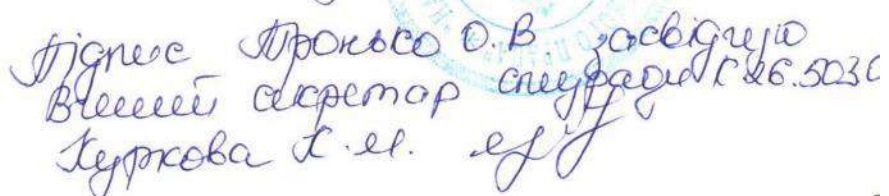 Підпис Пронько О.В засвідчую
Вчений секретар спецради К 26.503.0
Куркова К.М.